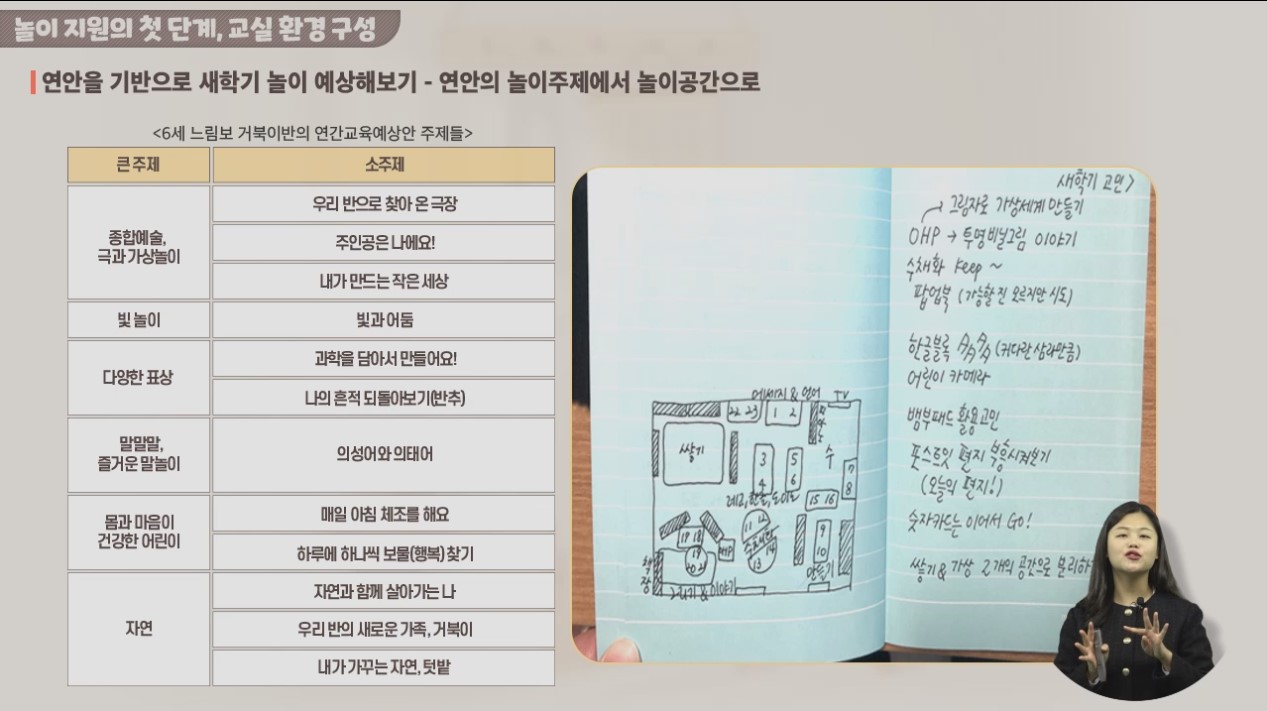 놀이 지원의 첫 단계, 교실 환경 구성
연안을 기반으로 새학기 놀이 예상해보기 - 연안의 놀이주제에서 놀이공간으로
<6세 느림보 거북이반의 연간교육예상안 주제들>
큰 주제 소주제
종합예술,
극과 가상놀이
우리 반으로 찾아 온 극장
주인공은 나에요!
내가 만드는 작은 세상
빛 놀이 빛과 어둠
다양한 표상
과학을 담아서 만들어요!
나의 흔적 되돌아보기(반추)
말말말,
즐거운 말놀이
의성어와 의태어
몸과 마음이
건강한 어린이
매일 아침 체조를 해요
하루에 하나씩 보물(행복) 찾기
자연
자연과 함께 살아가는 나
우리 반의 새로운 가족, 거북이
내가 가꾸는 자연, 텃밭
메세지 & 언어 TV
22 23 1 2
쌓기
3
4
5
6
수
7
8
15 16
11 12
13 14
9
10
만들기
18
19
책
장
이야기
새학기 고민>
그림자로 가상세계 만들기
OHP → 투명비닐그림 이야기
수채화 keep ~
팝업북 (가능할진 모르지만 시도)
한글블록 (커다란 삼라만큼)
어린이 카메라
뱀부패드 활용고민
포스트잇 편지 부흥시켜보기
(오늘의 편지!)
숫자카드는 이어서 Go!
쌓기 & 가상 2개의 공간으로 분리하